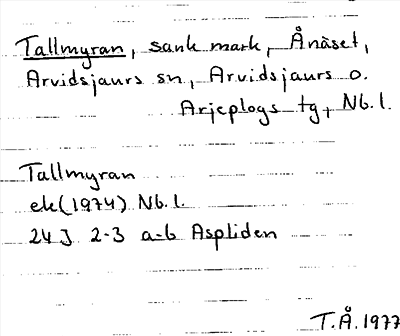 Tallmyran, sank mark, Ånäset,
Arvidsjaurs sn, Arvidsjaurs o.
Arjeplogs tg, Nb.l.
Tallmyran
ek(1974) Nb.l.
24J 2-3 a-b Aspliden
T.Å.1977